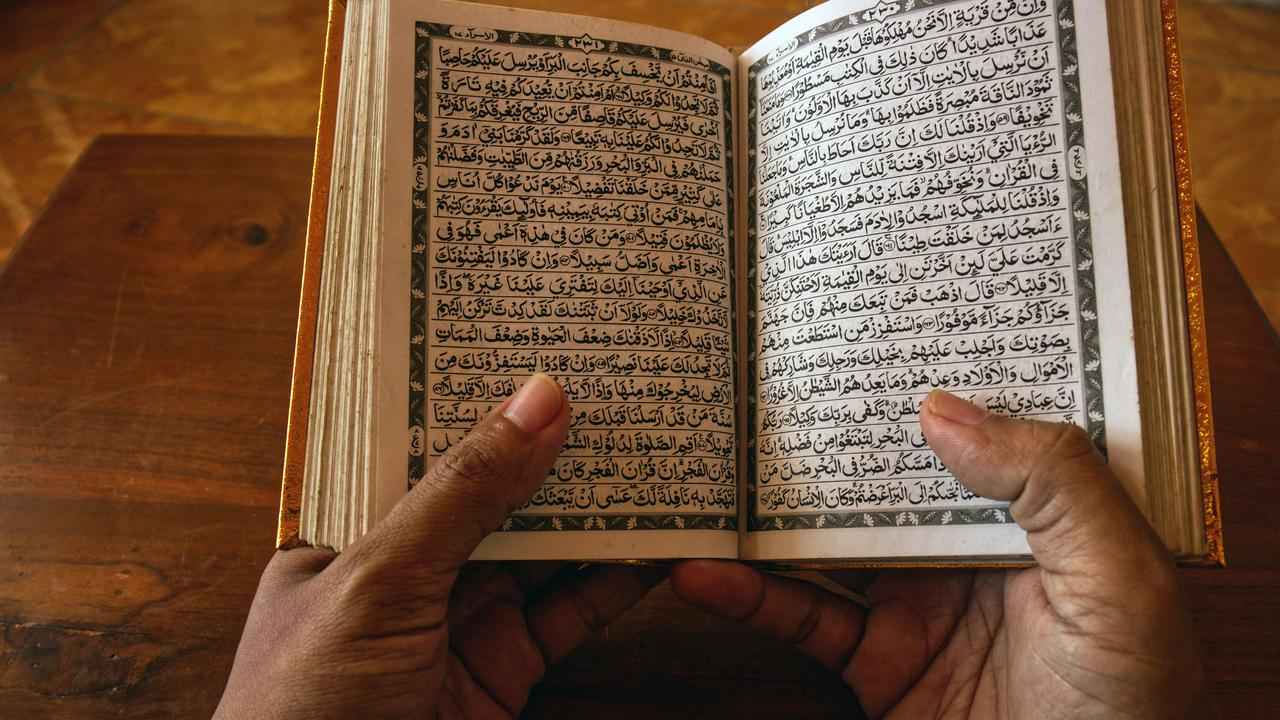 الاسرآء ١٧
٢٣٠
وَاِنْ مِّنْ قَرْيَةٍ اِلَّا نَحْنُ مُهْلِكُوْهَا قَبْلَ يَوْمِ الْقِيٰمَةِ اَوْ مُعَذِّبُوْهَا
عَذَابًا شَدِيْدًا كَانَ ذٰلِكَ فِى الْكِتٰبِ مَسْطُوْرًا ٥٨ وَمَا مَنَعَنَا
اَنْ نُّرْسِلَ بِالْاٰيٰتِ اِلَّا اَنْ كَذَّبَ بِهَا الْاَوَّلُوْنَ وَاٰتَيْنَا
ثَمُوْدَ النَّاقَةَ مُبْصِرَةً فَظَلَمُوْا بِهَا وَمَا نُرْسِلُ بِالْاٰيٰتِ اِلَّا
تَخْوِيْفًا ٥٩ وَاِذْ قُلْنَا لَكَ اِنَّ رَبَّكَ اَحَاطَ بِالنَّاسِ وَمَا جَعَلْنَا
الرُّءْيَا الَّتِىْ اَرَيْنٰكَ اِلَّا فِتْنَةً لِّلنَّاسِ وَالشَّجَرَةَ الْمَلْعُوْنَةَ
فِى الْقُرْاٰنِ وَنُخَوِّفُهُمْ فَمَا يَزِيْدُهُمْ اِلَّا طُغْيَانًا كَبِيْرًا ٦٠
وَاِذْ قُلْنَا لِلْمَلٰٓئِكَةِ اسْجُدُوْا لِاٰدَمَ فَسَجَدُوْا اِلَّا اِبْلِيْسَ قَالَ
ءَاَسْجُدُ لِمَنْ خَلَقْتَ طِيْنًا ٦١ قَالَ اَرَءَيْتَكَ هٰذَا الَّذِىْ
كَرَّمْتَ عَلَىَّ لَئِنْ اَخَّرْتَنِ اِلٰى يَوْمِ الْقِيٰمَةِ لَاَحْتَنِكَنَّ ذُرِّيَّتَهٗ
اِلَّا قَلِيْلًا ٦٢ قَالَ اذْهَبْ فَمَنْ تَبِعَكَ مِنْهُمْ فَاِنَّ جَهَنَّمَ
جَزَآؤُكُمْ جَزَآءً مَّوْفُوْرًا ٦٣ وَاسْتَفْزِزْ مَنِ اسْتَطَعْتَ مِنْهُمْ
بِصَوْتِكَ وَاَجْلِبْ عَلَيْهِمْ بِخَيْلِكَ وَرَجِلِكَ وَشَارِكْهُمْ فِى
الْاَمْوَالِ وَالْاَوْلَادِ وَعِدْهُمْ وَمَا يَعِدُهُمُ الشَّيْطٰنُ اِلَّا غُرُوْرًا ٦٤
اِنَّ عِبَادِىْ لَيْسَ سُلْطٰنٌ وَكَفٰى بِرَبِّكَ وَكِيْلًا ٦٥ رَبُّكُمُ
فِى الْبَحْرِ لِتَبْتَغُوْا مِنْ فَضْلِهٖ اِنَّهٗ
مَسَّكُمُ الضُّرُّ فِى الْبَحْرِ ضَلَّ مَنْ
نَجّٰىكُمْ اِلَى الْبَرِّ اَعْرَضْتُمْ وَكَانَ الْاِنْسَانُ كَفُوْرًا ٦٧
سبحن الذى ١٥
٢٣١
الاسرآء ١٧
اَفَاَمِنْتُمْ اَنْ يَّخْسِفَ بِكُمْ جَانِبَ الْبَرِّ اَوْ يُرْسِلَ عَلَيْكُمْ حَاصِبًا
ثُمَّ لَا تَجِدُوْا لَكُمْ وَكِيْلًا ٦٨ اَمْ اَمِنْتُمْ اَنْ يُّعِيْدَكُمْ فِيْهِ تَارَةً
اُخْرٰى فَيُرْسِلَ عَلَيْكُمْ قَاصِفًا مِّنَ الرِّيْحِ فَيُغْرِقَكُمْ بِمَا كَفَرْتُمْ
ثُمَّ لَا تَجِدُوْا لَكُمْ عَلَيْنَا بِهٖ تَبِيْعًا ٦٩ وَلَقَدْ كَرَّمْنَا بَنِىْٓ اٰدَمَ وَ
حَمَلْنٰهُمْ فِى الْبَرِّ وَالْبَحْرِ وَرَزَقْنٰهُمْ مِّنَ الطَّيِّبٰتِ وَفَضَّلْنٰهُمْ
عَلٰى كَثِيْرٍ مِّمَّنْ خَلَقْنَا تَفْضِيْلًا ٧٠ يَوْمَ نَدْعُوْا كُلَّ اُنَاسٍ
بِاِمَامِهِمْ فَمَنْ اُوْتِىَ كِتٰبَهٗ بِيَمِيْنِهٖ فَاُولٰٓئِكَ يَقْرَءُوْنَ كِتٰبَهُمْ
وَلَا يُظْلَمُوْنَ فَتِيْلًا ٧١ وَمَنْ كَانَ فِىْ هٰذِهٖٓ اَعْمٰى فَهُوَ فِى
الْاٰخِرَةِ اَعْمٰى وَاَضَلُّ سَبِيْلًا ٧٢ وَاِنْ كَادُوْا لَيَفْتِنُوْنَكَ
عَنِ الَّذِىْٓ اَوْحَيْنَآ اِلَيْكَ لِتَفْتَرِىَ عَلَيْنَا غَيْرَهٗ وَاِذًا
لَّاتَّخَذُوْكَ خَلِيْلًا ٧٣ وَلَوْلَآ اَنْ ثَبَّتْنٰكَ لَقَدْ كِدْتَّ تَرْكَنُ اِلَيْهِمْ
شَيْئًا قَلِيْلًا ٧٤ اِذًا لَّاَذَقْنٰكَ ضِعْفَ الْحَيٰوةِ وَضِعْفَ الْمَمَاتِ
ثُمَّ لَا تَجِدُ لَكَ عَلَيْنَا نَصِيْرًا ٧٥ وَاِنْ كَادُوْا لَيَسْتَفِزُّوْنَكَ مِنَ
الْاَرْضِ لِيُخْرِجُوْكَ مِنْهَا وَاِذًا لَّا خِلٰفَكَ اِلَّا قَلِيْلًا ٧٦
سُنَّةَ مَنْ قَدْ اَرْسَلْنَا قَبْلَكَ مِنْ لِسُنَّتِنَا
تَحْوِيْلًا ٧٧ اَقِمِ الصَّلٰوةَ لِدُلُوْكِ الشَّمْسِ
وَقُرْاٰنَ الْفَجْرِ اِنَّ قُرْاٰنَ الْفَجْرِ كَانَ
فَتَهَجَّدْ بِهٖ نَافِلَةً لَّكَ عَسٰٓى اَنْ يَّبْعَثَكَ